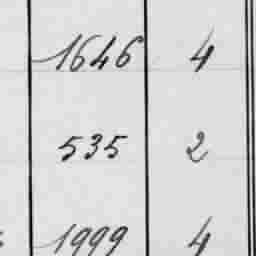 1646 4
535 2
1999 4